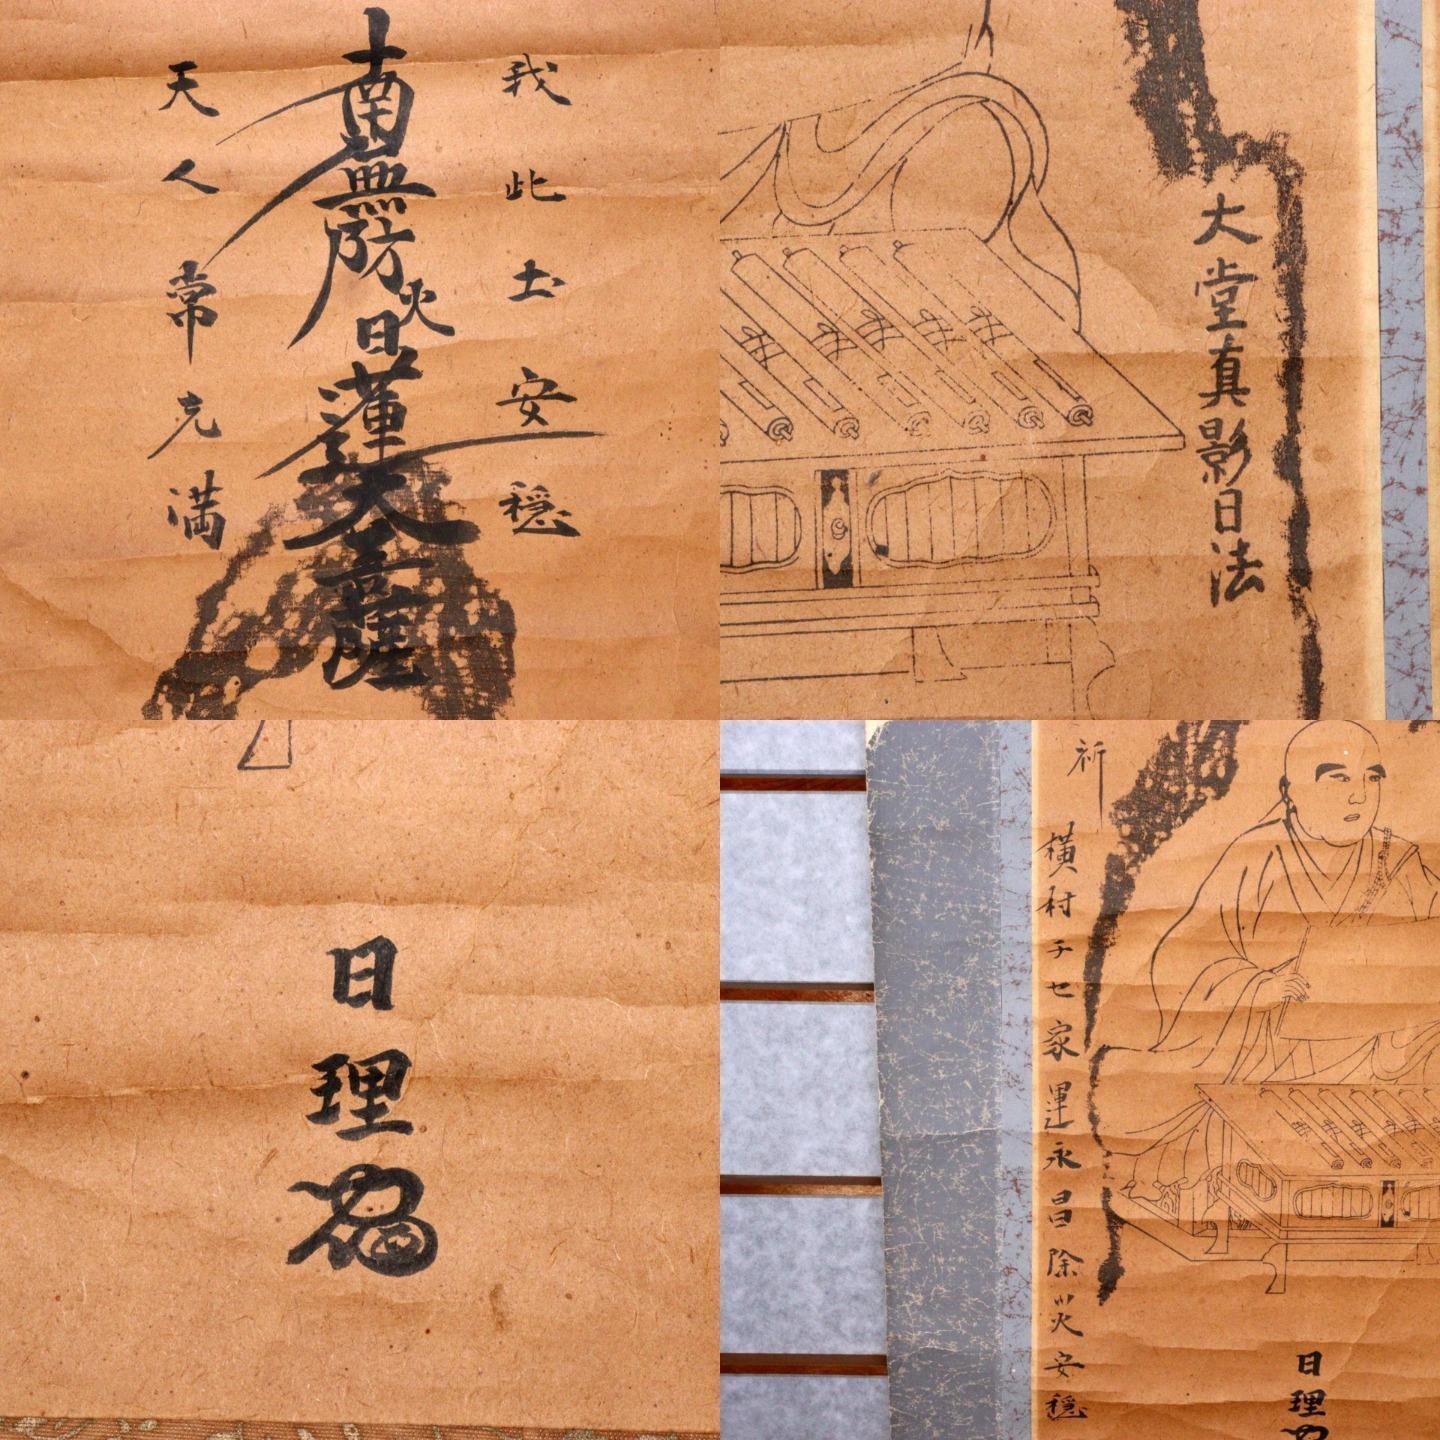 我此土安穏
南無防火日蓮大菩薩
天人常充満
大堂真影日法
日理
祈
横村チセ家運永昌除災安穏
日理